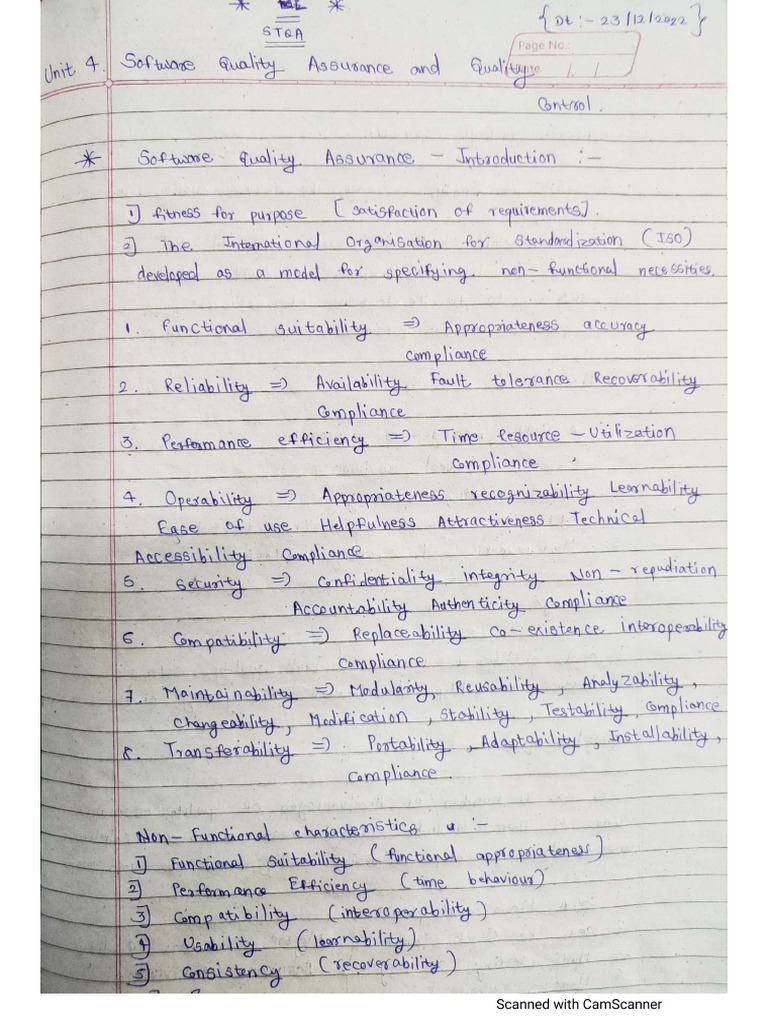 STQA
{ Dt :- 23/12/2022 }
Page No.:
Unit 4. Software Quality Assurance and Quality
Control.
* Software Quality Assurance - Introduction :-
1) fitness for purpose [satisfaction of requirements].
2) The International Organisation for standardization (ISO)
developed as a model for specifying non-functional necessities.
1. Functional suitability => Appropriateness accuracy
compliance
2. Reliability => Availability Fault tolerance Recoverability
Compliance
3. Performance efficiency => Time Resource - Utilization
compliance
4. Operability => Appropriateness recognizability Learnability
Ease of use Helpfulness Attractiveness Technical
Accessibility Compliance
5. Security => Confidentiality integrity Non - repudiation
Accountability Authenticity Compliance
6. Compatibility => Replaceability Co-existence interoperability
Compliance
7. Maintainability => Modularity, Reusability, Analyzability,
Changeability, Modification, Stability, Testability, Compliance
8. Transferability => Portability, Adaptability, Installability,
Compliance.
Non-Functional characteristics :-
1) Functional Suitability (functional appropriateness)
2) Performance Efficiency (time behaviour)
3) Compatibility (interoperability)
4) Usability (learnability)
5) Consistency (recoverability)
Scanned with CamScanner